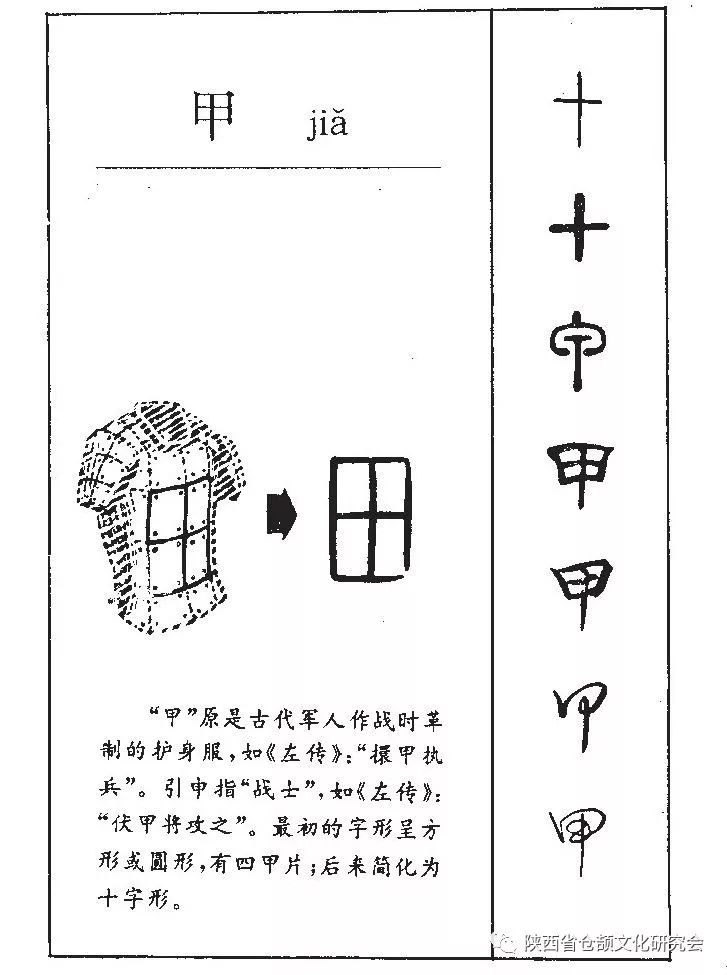 甲 jiǎ
“甲”原是古代军人作战时革
制的护身服，如《左传》：“擐甲执
兵”。引申指“战士”，如《左传》：
“伏甲将攻之”。最初的字形呈方
形或圓形，有四甲片；后来简化为
十字形。
十
十
甲
甲
甲
甲
陕西省仓颉文化研究会